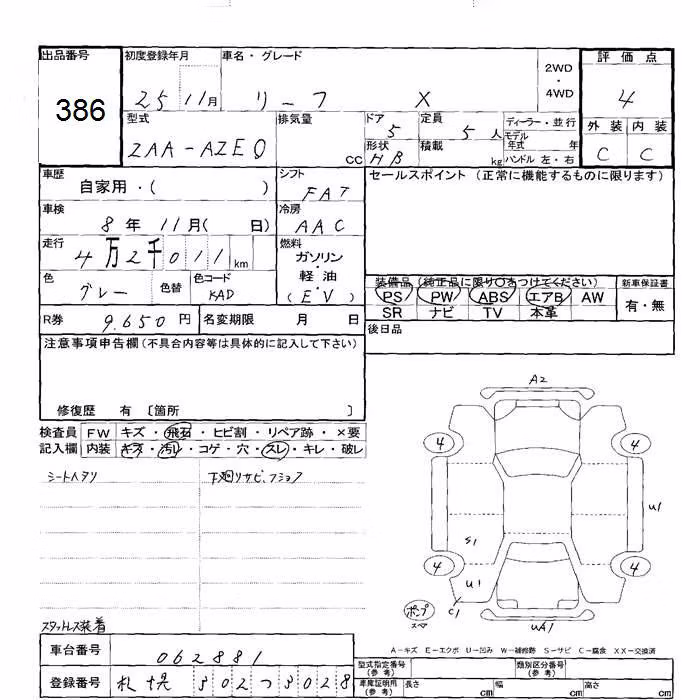 出品番号
386
初度登録年月
25 11月
車名・グレード
リーフ X
2WD
・
4WD
評価点
4
外装 内装
C C
型式
ZAA-AZE0
排気量
cc
ドア 5
定員 5人
形状 HB
積載 kg
ディーラー・並行
モデル年式 年
ハンドル 左・右
車歴
自家用・( )
シフト
FAT
セールスポイント(正常に機能するものに限ります)
車検
8年 11月( 日)
冷房
AAC
走行
4万2千011km
燃料
ガソリン
・
軽油
(EV)
色
グレー
色替
色コード
KAD
装備品(純正品に限り〇をつけてください)
PS PW ABS エアB AW
SR ナビ TV 本革
新車保証書
有・無
R券 9.650円
名変期限 月 日
後日品
注意事項申告欄(不具合内容等は具体的に記入して下さい)
修復歴 有 〔箇所 〕
検査員
記入欄
FW キズ・飛石・ヒビ割・リペア跡・×要
内装 キズ・汚レ・コゲ・穴・スレ・キレ・破レ
シートヘタリ
下廻りサビ.フショク
スタットレス装着
A2
4
4
U1
S1
4
4
U1
C1
UA1
ポンプ
スペア
A-キズ E-エクボ U-凹み W-補修跡 S-サビ C-腐食 XX-交換済
車台番号
062881
登録番号
札幌 302つ3028
型式指定番号
(参考)
類別区分番号
(参考)
車庫証明用
(参考)
長さ cm
幅 cm
高さ cm